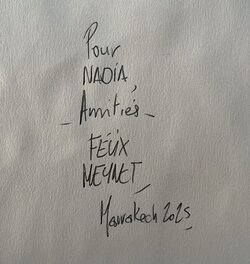 Pour
NADIA,
- Amitiés -
FÉLIX
MEYNET
Marrakech 2025